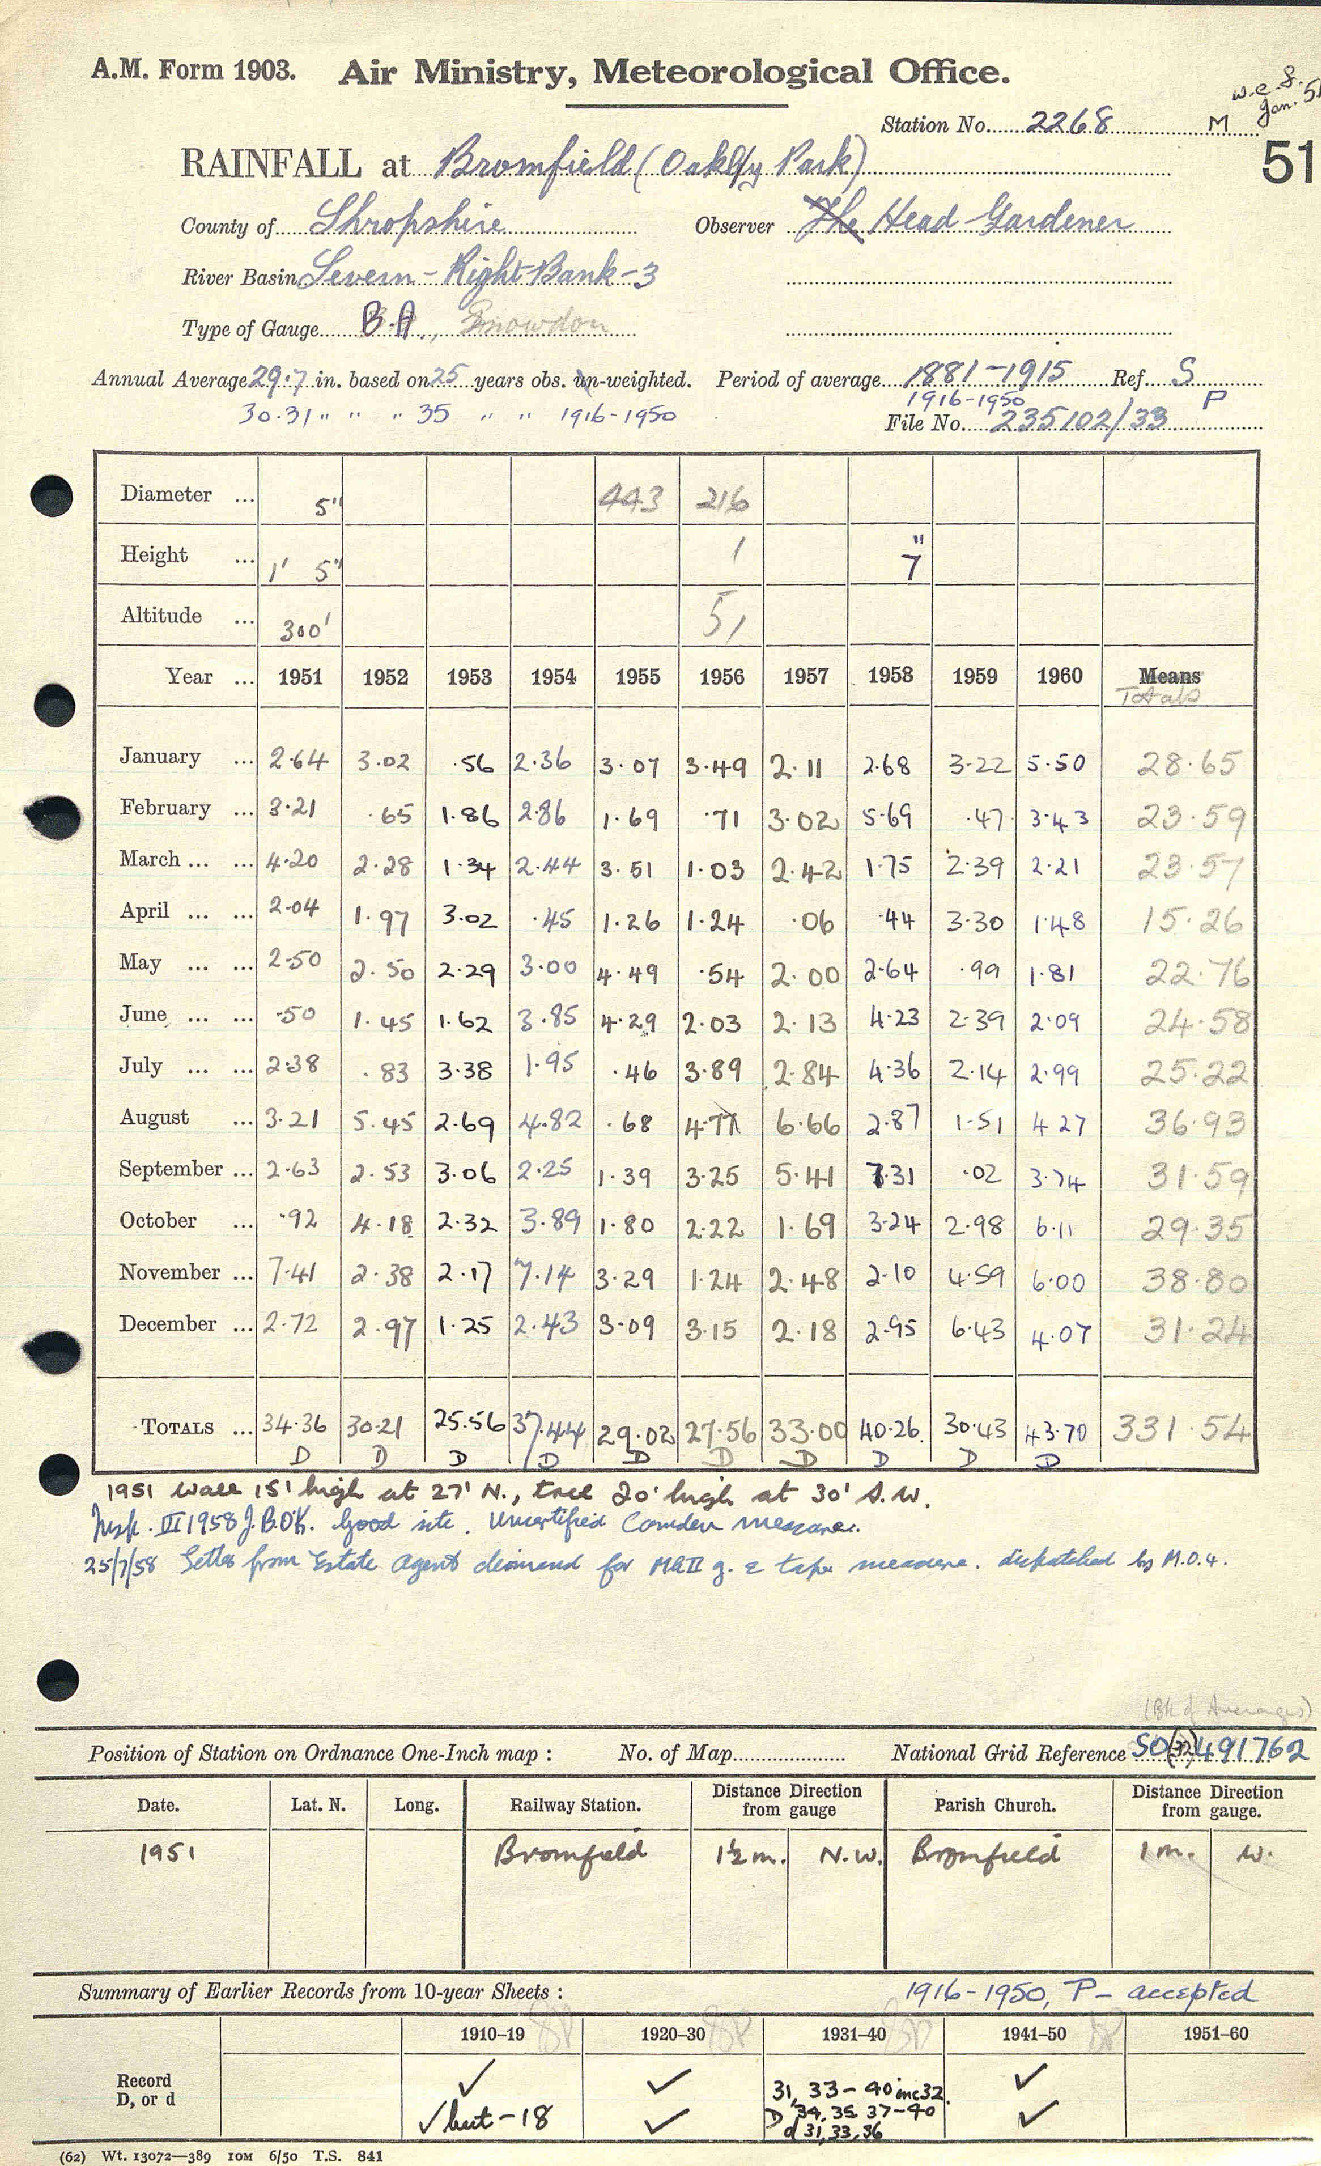 A.M. Form 1903. Air Ministry, Meteorological Office.
w.e.f. Jan. 51
Station No. 2268 M
51
RAINFALL at Bromfield (Oakly Park)
County of Shropshire Observer The Head Gardener
River Basin Severn - Right Bank - 3
Type of Gauge B.A., Snowdon
Annual Average 29.7 in. based on 25 years obs. un-weighted. Period of average 1881-1915 Ref. S
30.31 " " " 35 " " 1916-1950 1916-1950 P
File No. 235102/33
Diameter ... 5" 443 216
Height ... 1' 5" 1 7"
Altitude ... 300' 51
Year ... 1951 1952 1953 1954 1955 1956 1957 1958 1959 1960 Means
Totals
January ... 2.64 3.02 .56 2.36 3.07 3.49 2.11 2.68 3.22 5.50 28.65
February ... 3.21 .65 1.86 2.86 1.69 .71 3.02 5.69 .47 3.43 23.59
March ... ... 4.20 2.28 1.34 2.44 3.51 1.03 2.42 1.75 2.39 2.21 23.57
April ... ... 2.04 1.97 3.02 .45 1.26 1.24 .06 .44 3.30 1.48 15.26
May ... ... 2.50 2.50 2.29 3.00 4.49 .54 2.00 2.64 .99 1.81 22.76
June ... ... .50 1.45 1.62 3.85 4.29 2.03 2.13 4.23 2.39 2.09 24.58
July ... ... 2.38 .83 3.38 1.95 .46 3.89 2.84 4.36 2.14 2.99 25.22
August ... 3.21 5.45 2.69 4.82 .68 4.77 6.66 2.87 1.51 4.27 36.93
September ... 2.63 2.53 3.06 2.25 1.39 3.25 5.41 7.31 .02 3.74 31.59
October ... .92 4.18 2.32 3.89 1.80 2.22 1.69 3.24 2.98 6.11 29.35
November ... 7.41 2.38 2.17 7.14 3.29 1.24 2.48 2.10 4.59 6.00 38.80
December ... 2.72 2.97 1.25 2.43 3.09 3.15 2.18 2.95 6.43 4.07 31.24
TOTALS ... 34.36 30.21 25.56 37.44 29.02 27.56 33.00 40.26 30.43 43.70 331.54
D D D D D D D D D D
1951 Wall 15' high at 27' N., tree 20' high at 30' S.W.
Insp. III 1958 J.B.OK. Good site. Uncertified Camden measure.
25/7/58 Letter from Estate Agent demand for MkII g. & tape measure. dispatched by M.O.4.
(Bk of Averages)
Position of Station on Ordnance One-Inch map : No. of Map National Grid Reference SO(32)491762
Date. Lat. N. Long. Railway Station. Distance Direction from gauge Parish Church. Distance Direction from gauge.
1951 Bromfield 1½ m. N.W. Bromfield 1 m. W.
Summary of Earlier Records from 10-year Sheets : 1916-1950, P - accepted
1910-19 1920-30 1931-40 1941-50 1951-60
Record ✓ ✓ 31, 33-40 inc 32 ✓
D, or d ✓ but -18 ✓ D 34, 35, 37-40 ✓
d 31, 33, 36
(62) Wt. 13072—389 10M 6/50 T.S. 841